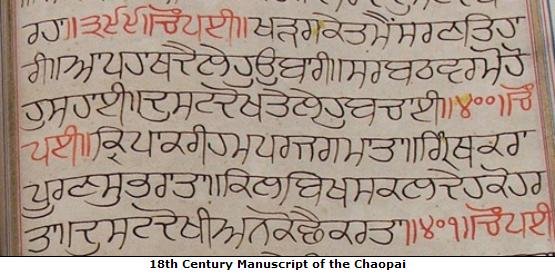 ਰਹਾ॥੩੯੯॥ਚੌਪਈ॥ਖੜਗਕੇਤਮੈਂਸਰਣਤਿਹਾ
ਰੀ॥ਆਪਹਾਥਦੈਲੇਹੁਉਬਾਰੀ॥ਸਰਬਠਵਰਮੋਹੋ
ਹੁਸਹਾਈ॥ਦੁਸਟਦੋਖਤੇਲੇਹੁਬਚਾਈ॥੪੦੦॥ਚੌ
ਪਈ॥ਕ੍ਰਿਪਾਕਰੀਹਮਪਰਜਗਮਾਤਾ॥ਗ੍ਰਿੰਥਕਰਾ
ਪੂਰਣਸੁਭਰਾਤਾ॥ਕਿਲਬਿਖਸਕਲਦੇਹਕੋਹਰ
ਤਾ॥ਦੁਸਟਦੋਖੀਅਨਕੋਛੈਕਰਤਾ॥੪੦੧॥ਚੌਪਈ
18th Century Manuscript of the Chaopai